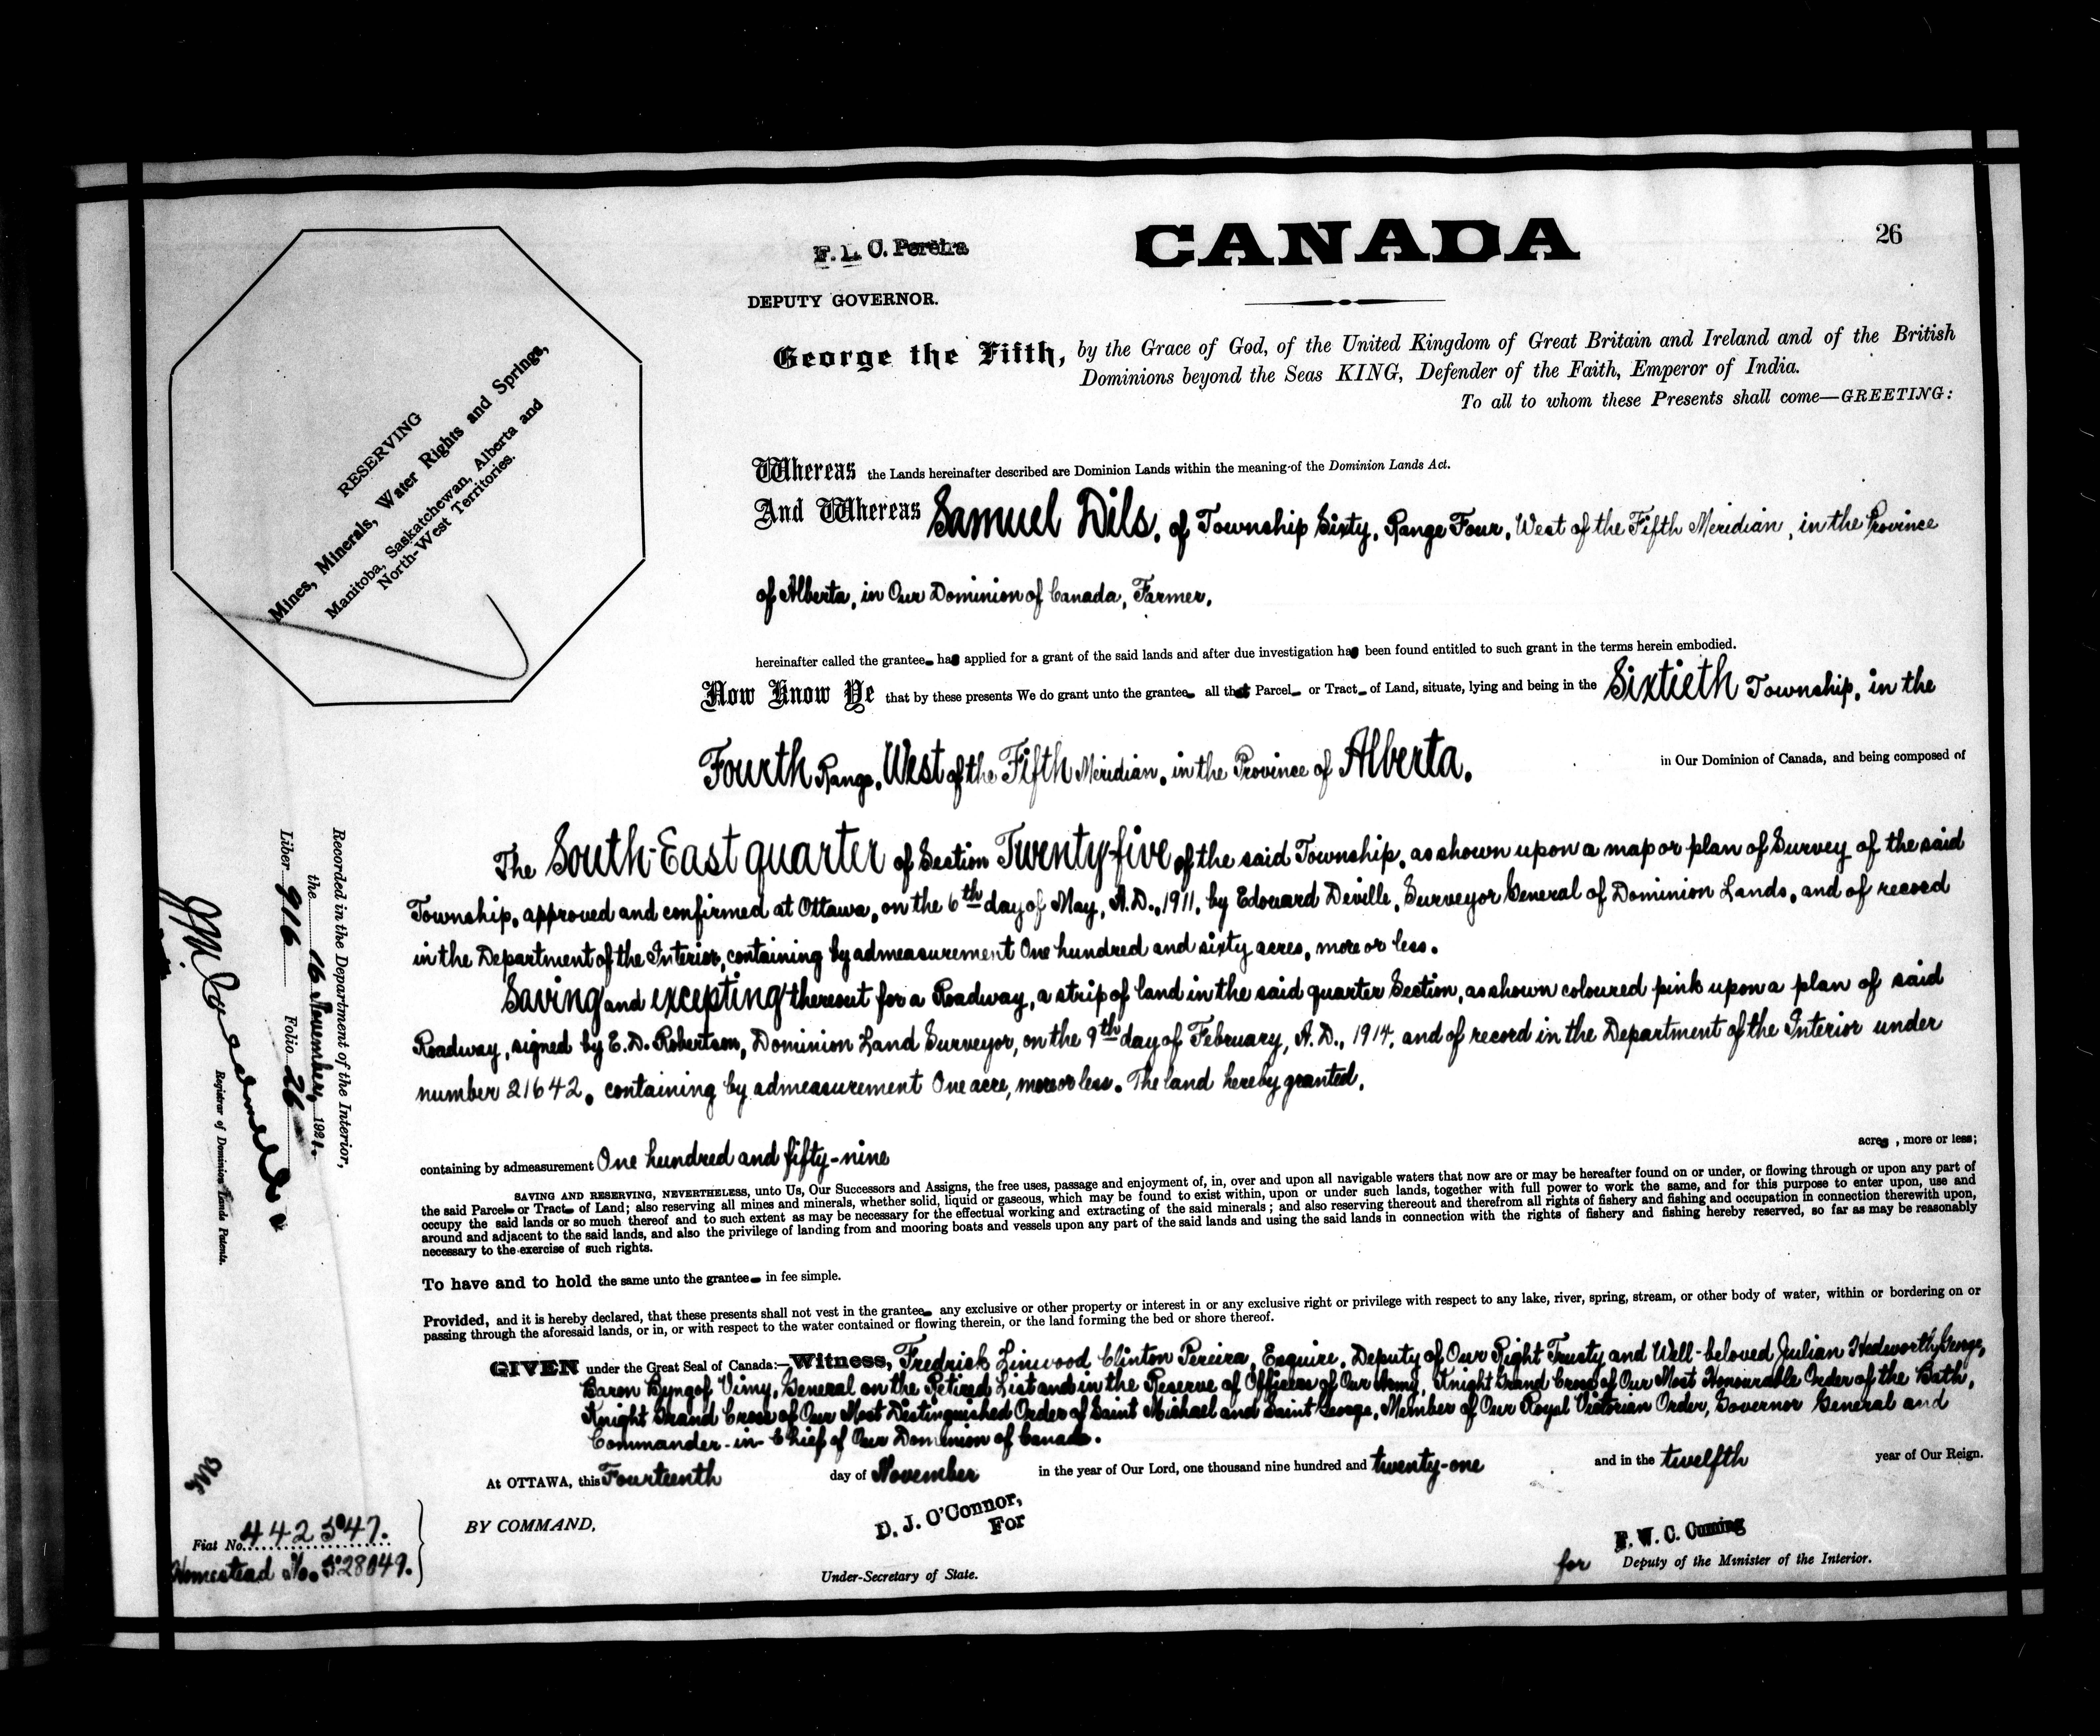 CANADA
26
F. L. C. Pereira
DEPUTY GOVERNOR.
George the Fifth, by the Grace of God, of the United Kingdom of Great Britain and Ireland and of the British
Dominions beyond the Seas KING, Defender of the Faith, Emperor of India.
To all to whom these Presents shall come—GREETING:
RESERVING
Mines, Minerals, Water Rights and Springs,
Manitoba, Saskatchewan, Alberta and
North-West Territories.
Whereas the Lands hereinafter described are Dominion Lands within the meaning of the Dominion Lands Act.
And Whereas Samuel Dils, of Township Sixty, Range Four, West of the Fifth Meridian, in the Province
of Alberta, in Our Dominion of Canada, Farmer,
hereinafter called the grantee has applied for a grant of the said lands and after due investigation has been found entitled to such grant in the terms herein embodied.
Now Know Ye that by these presents We do grant unto the grantee all that Parcel or Tract of Land, situate, lying and being in the Sixtieth Township, in the
Fourth Range, West of the Fifth Meridian, in the Province of Alberta, in Our Dominion of Canada, and being composed of
The South-East quarter of Section Twenty-five of the said Township, as shown upon a map or plan of Survey of the said
Township, approved and confirmed at Ottawa, on the 6th day of May, A.D., 1911, by Edouard Deville, Surveyor General of Dominion Lands, and of record
in the Department of the Interior, containing by admeasurement One hundred and sixty acres, more or less.
Saving and excepting thereout for a Roadway, a strip of land in the said quarter Section, as shown coloured pink upon a plan of said
Roadway, signed by E. D. Robertson, Dominion Land Surveyor, on the 9th day of February, A.D., 1914, and of record in the Department of the Interior under
number 21642, containing by admeasurement One acre, more or less. The land hereby granted,
containing by admeasurement One hundred and fifty-nine acres, more or less;
SAVING AND RESERVING, NEVERTHELESS, unto Us, Our Successors and Assigns, the free uses, passage and enjoyment of, in, over and upon all navigable waters that now are or may be hereafter found on or under, or flowing through or upon any part of
the said Parcel or Tract of Land; also reserving all mines and minerals, whether solid, liquid or gaseous, which may be found to exist within, upon or under such lands, together with full power to work the same, and for this purpose to enter upon, use and
occupy the said lands or so much thereof and to such extent as may be necessary for the effectual working and extracting of the said minerals; and also reserving thereout and therefrom all rights of fishery and fishing and occupation in connection therewith upon,
around and adjacent to the said lands, and also the privilege of landing from and mooring boats and vessels upon any part of the said lands and using the said lands in connection with the rights of fishery and fishing hereby reserved, so far as may be reasonably
necessary to the exercise of such rights.
To have and to hold the same unto the grantee in fee simple.
Provided, and it is hereby declared, that these presents shall not vest in the grantee any exclusive or other property or interest in or any exclusive right or privilege with respect to any lake, river, spring, stream, or other body of water, within or bordering on or
passing through the aforesaid lands, or in, or with respect to the water contained or flowing therein, or the land forming the bed or shore thereof.
GIVEN under the Great Seal of Canada:—Witness, Fredrick Linwood Clinton Pereira, Esquire, Deputy of Our Right Trusty and Well-beloved Julian Hedworth George,
Baron Byng of Vimy, General on the Retired List and in the Reserve of Officers of Our Army, Knight Grand Cross of Our Most Honourable Order of the Bath,
Knight Grand Cross of Our Most Distinguished Order of Saint Michael and Saint George, Member of Our Royal Victorian Order, Governor General and
Commander-in-Chief of Our Dominion of Canada.
At OTTAWA, this Fourteenth day of November in the year of Our Lord, one thousand nine hundred and twenty-one and in the twelfth year of Our Reign.
BY COMMAND,
D. J. O'Connor,
For
Under-Secretary of State.
F. W. C. Cuming
for Deputy of the Minister of the Interior.
Recorded in the Department of the Interior,
the 16 November, 1921.
Liber 916 Folio 26
Registrar of Dominion Lands Patents.
Fiat No. 442547.
Homestead No. 528049.